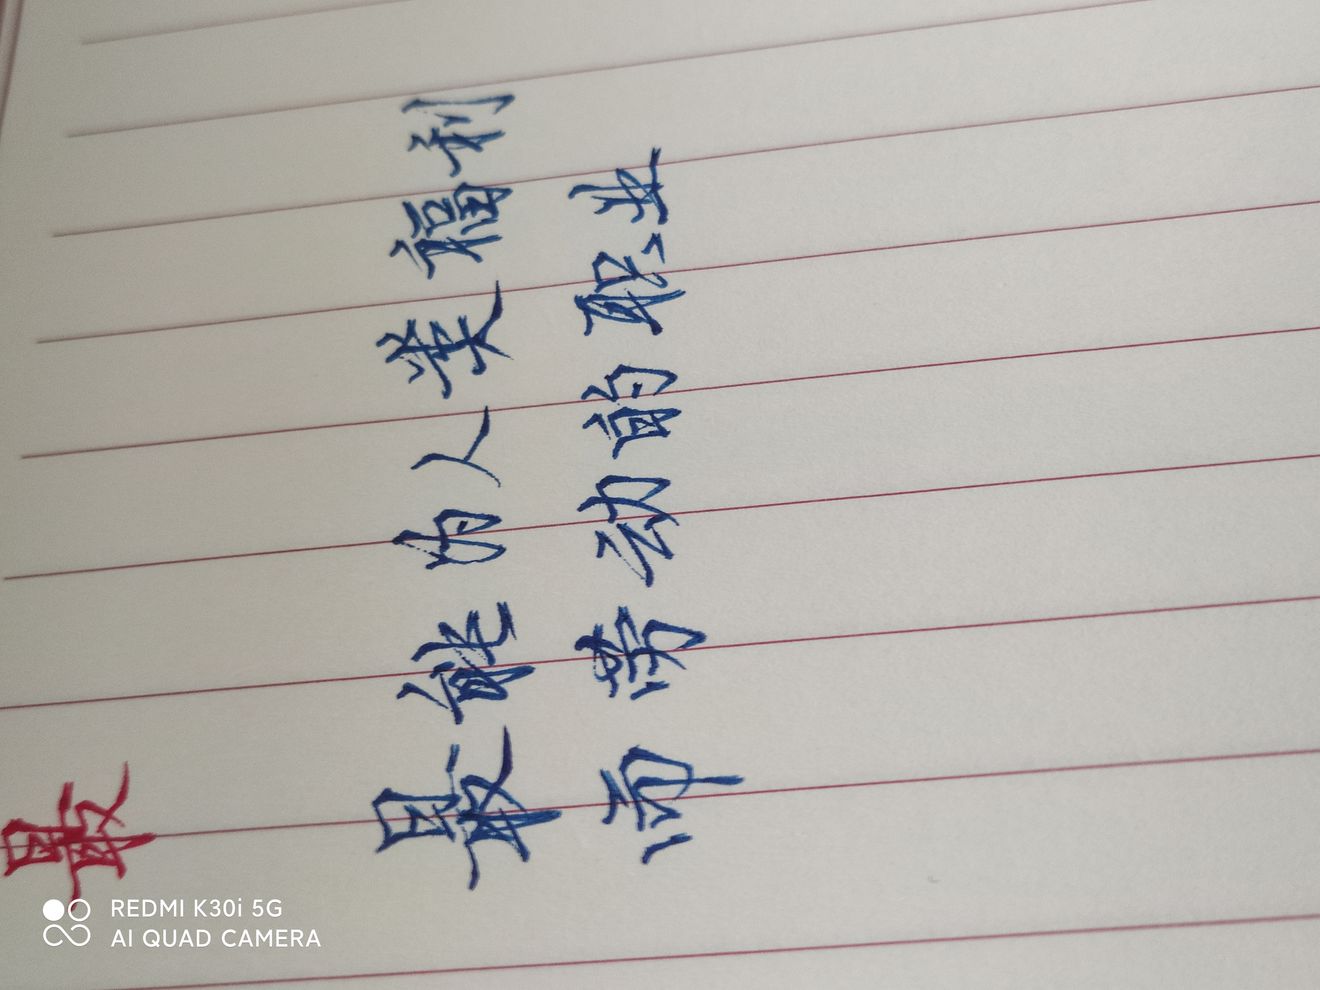 最
最能为人类福利
而劳动的职业
REDMI K30i 5G
AI QUAD CAMERA